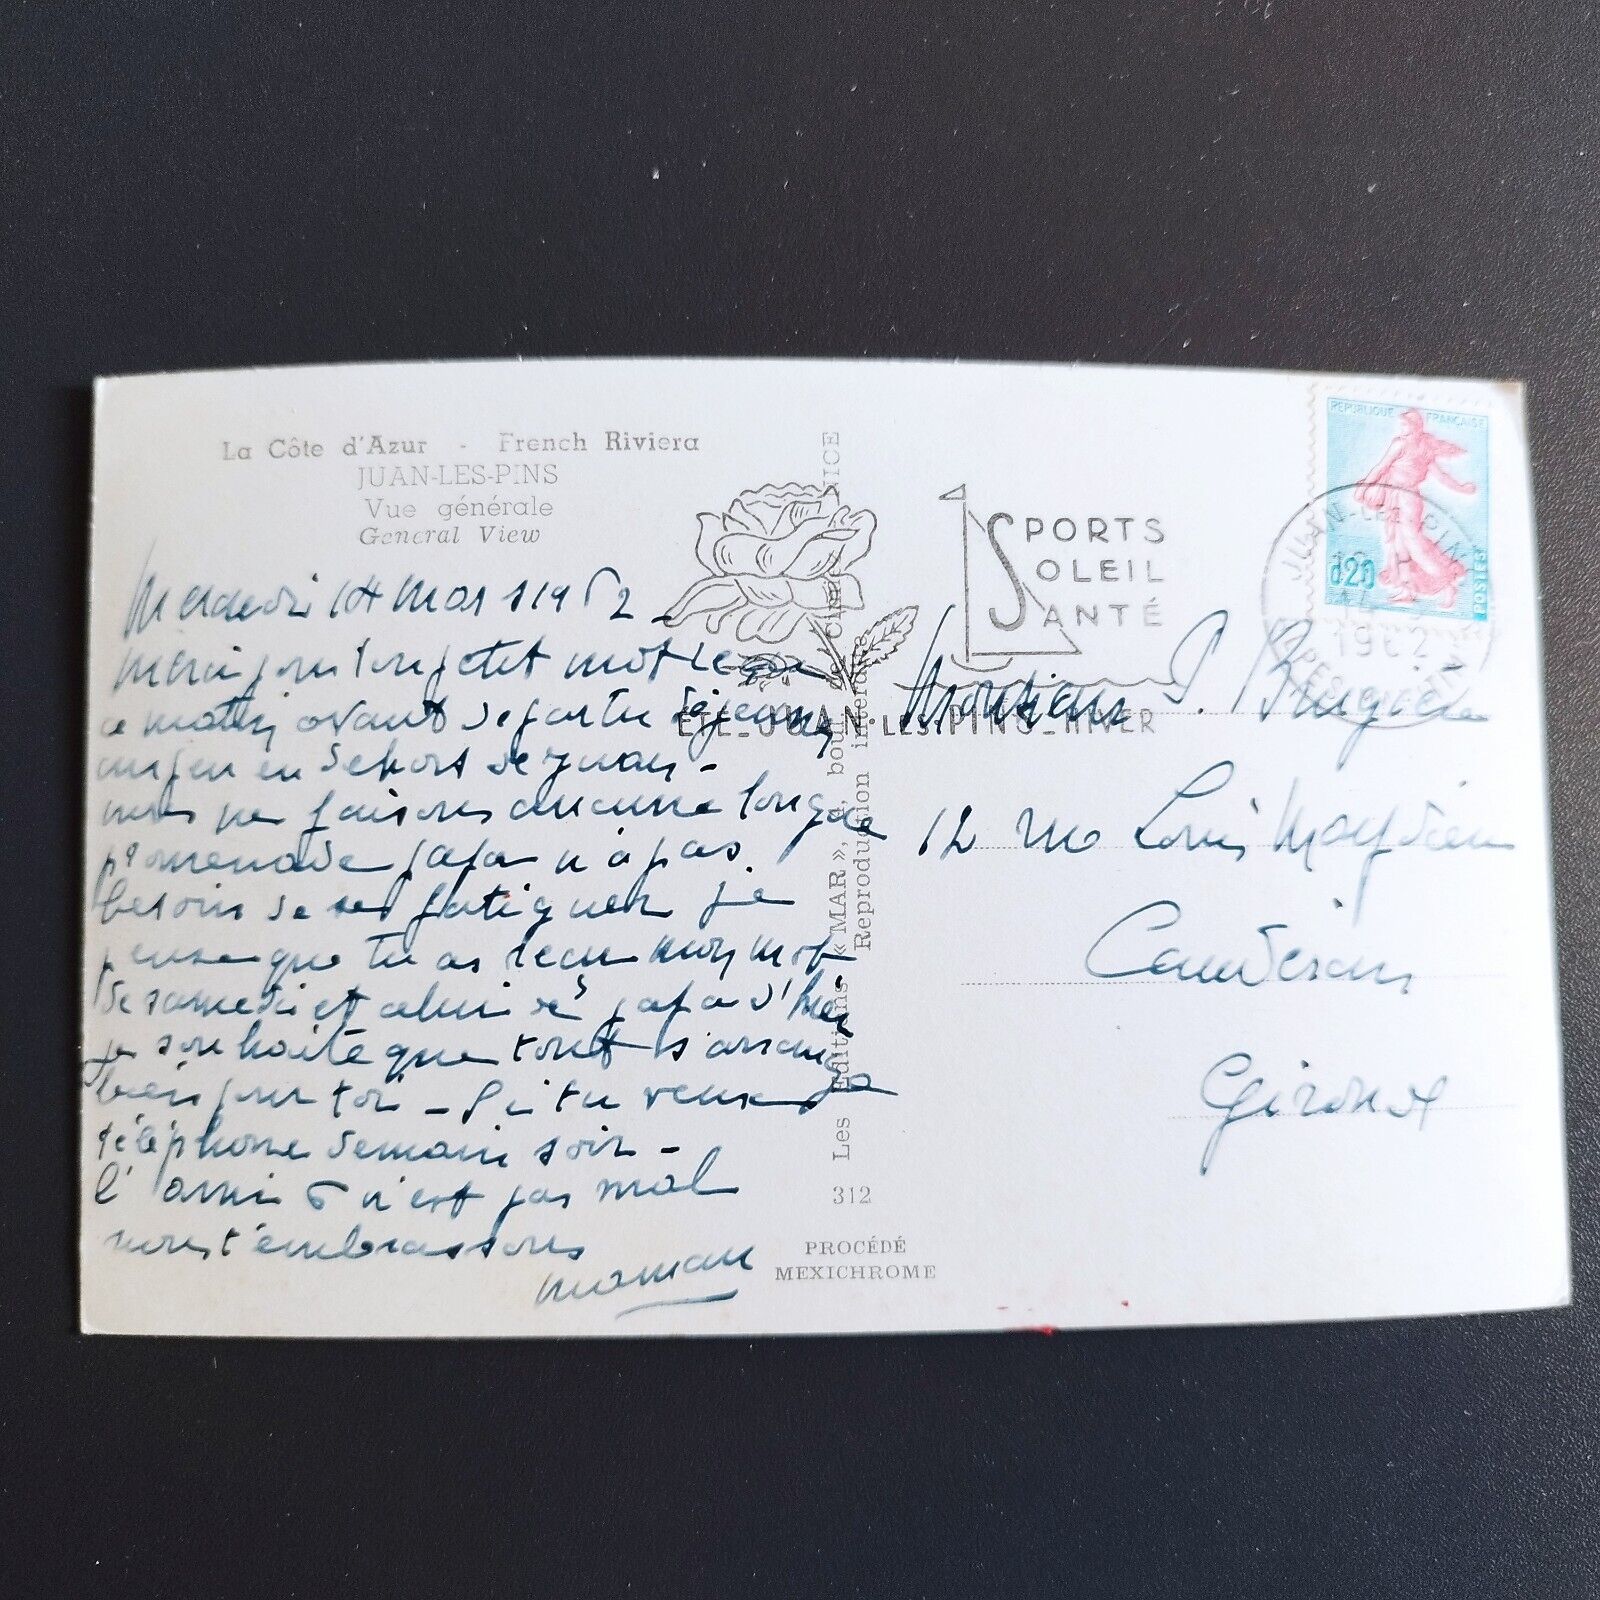 La Côte d'Azur - French Riviera
JUAN-LES-PINS
Vue générale
General View
Mercredi 14 Mars 1962 -
Merci pour ton petit mot reçu
ce matin avant de partir déjeuner
un peu en dehors de Juan -
nous ne faisons aucune longue
promenade papa n'a pas
besoin de se fatiguer je
pense que tu as reçu mon mot
de samedi et celui de papa d'hier
je souhaite que tout s'arrange
bien pour toi - Si tu veux
téléphone demain soir -
l' ami n'est pas mal
nous t'embrassons
maman
Les Éditions « MAR », boul. de NICE
Reproduction interdite
312
PROCÉDÉ
MEXICHROME
SPORTS
SOLEIL
SANTÉ
ÉTÉ_JUAN-LES-PINS_HIVER
REPUBLIQUE FRANÇAISE
0,20
POSTES
JUAN-LES-PINS
14
1962
Monsieur P. Brugière
12 rue Louis
Caudéran
Gironde